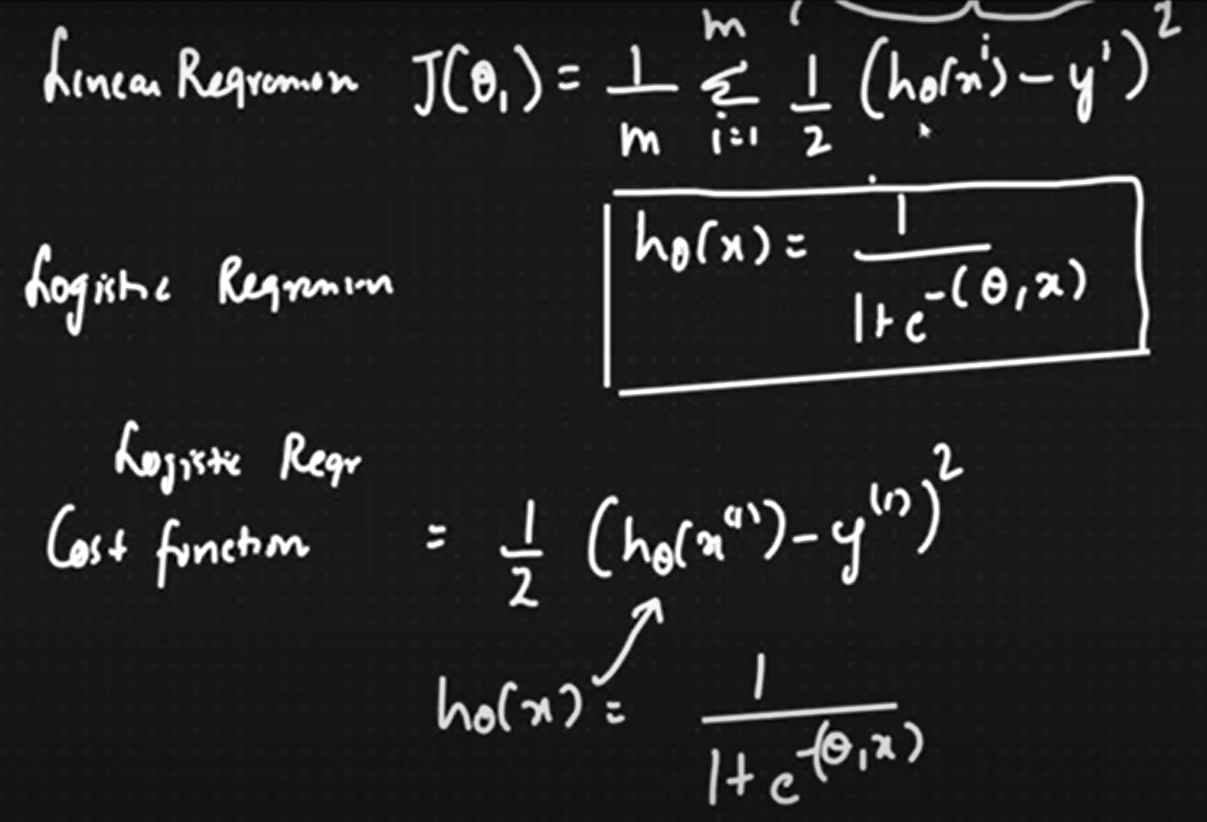 Linear Regression J(θ₁) = 1/m Σ_{i=1}^{m} 1/2 (hθ(xⁱ) - yⁱ)²
hθ(x) = 1 / (1 + e^{-(θ₁x)})
Logistic Regression
Logistic Regr
Cost function = 1/2 (hθ(x⁽ⁱ⁾) - y⁽ⁱ⁾)²
hθ(x) = 1 / (1 + e^{-(θ₁x)})